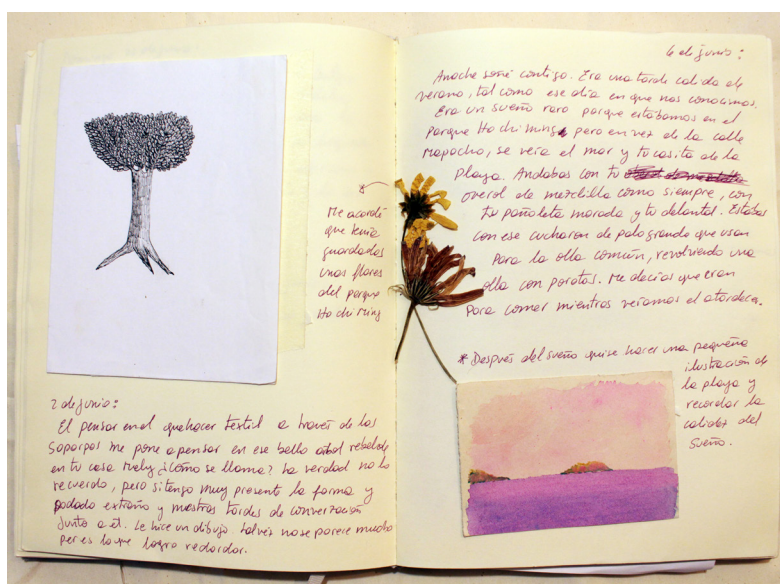 2 de junio:
El pensar en el quehacer textil a través de las
Soporpos me pone a pensar en ese bello arbol rebelde
en tu casa Nely ¿Cómo se llama? La verdad no lo
recuerdo, pero si tengo muy presente la forma y
podado extraño y nuestras tardes de converzación
junto a él. Le hice un dibujo. Talvéz no se parece mucho
per es lo que logro recordar.
*
Me acordé
que tenía
guardadas
unas flores
del parque
Ho chi Ming
6 de junio:
Anoche soñé contigo. Era una tarde calida de
verano, tal como ese día en que nos conocimos.
Era un sueño raro porque estábamos en el
parque Ho chi ming, pero en vez de la calle
Mapocho, se veía el mar y tu casita de la
playa. Andabas con tu
overol de mezclilla como siempre, con
tu pañoleta morada y tu delantal. Estabas
con ese cucharon de palo grande que usan
para la olla común, revolviendo una
olla con porotos. Me decías que eran
para comer mientras veíamos el atardecer.
* Después del sueño quise hacer una pequeña
ilustración de
la playa y
recordar la
calidez del
sueño.